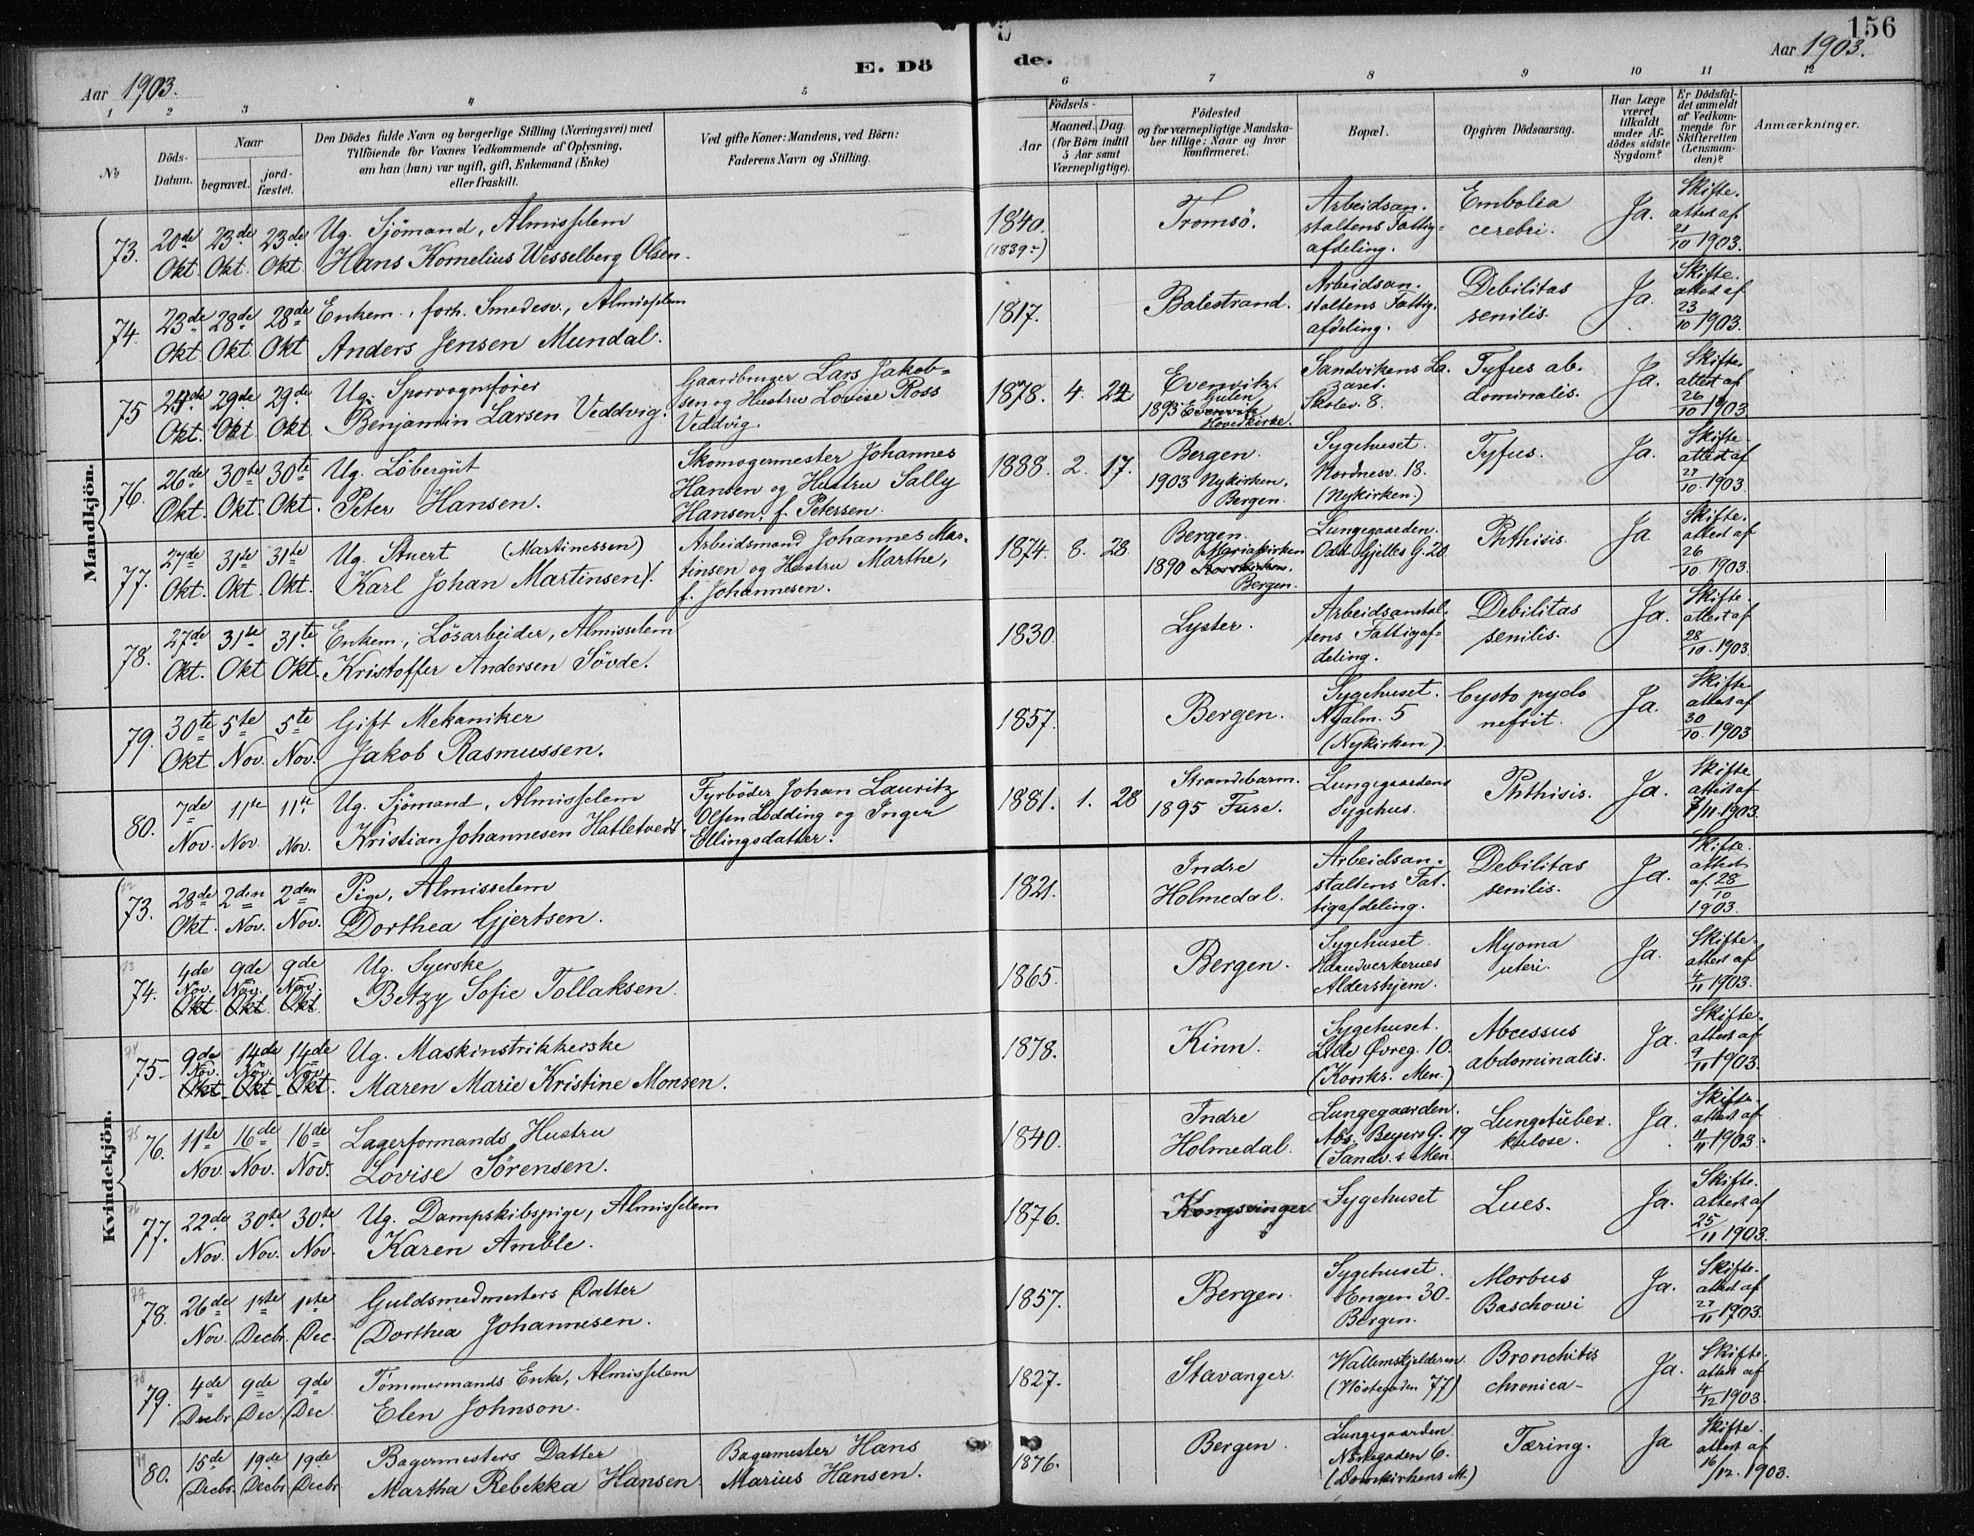 156
Aar 1903.
E. Döde.
Aar 1903.
1 2 3 4 5 6 7 8 9 10 11 12
No
Döds-Datum.
Naar
begravet.
jordfæstet.
Den Dödes fulde Navn og borgerlige Stilling (Næringsvei) med
Tilföiende for Voxnes Vedkommende af Oplysning,
om han (hun) var ugift, gift, Enkemand (Enke)
eller fraskilt.
Ved gifte Koner: Mandens, ved Börn:
Faderens Navn og Stilling.
Födsels-
Aar
Maaned. Dag.
(for Börn indtil
5 Aar samt
Værnepligtige).
Födested
og for værnepligtige Mandska-
ber tillige: Naar og hvor
konfirmeret.
Bopæl.
Opgiven Dödsaarsag.
Har Læge
været
tilkaldt
under Af-
dödes sidste
Sygdom?
Er Dödsfal-
det anmeldt
af Vedkom-
mende for
Skifteretten
(Lensman-
den)?
Anmærkninger.
Mandkjön.
73. 20de Okt. 23de Okt. 23de Okt
Ug. Sjömand, Almisselem
Hans Kornelius Wesselberg Olsen.
1840. (1839-)
Tromsö.
Arbeidsan-
staltens Fattig-
afdeling.
Embolia
cerebri.
Ja.
Skifte-
attest af
21/10 1903.
74. 23de Okt. 28de Okt. 28de Okt
Enkem., forh. Smedesv., Almisselem
Anders Jensen Mundal.
1817.
Balestrand.
Arbeidsan-
staltens Fattig-
afdeling.
Debilitas
senilis.
Ja.
Skifte-
attest af
23/10 1903.
75 24de Okt. 29de Okt. 29de Okt.
Ug. Sporvognsfører
Benjamin Larsen Veddvig.
Gaardbruger Lars Jakob-
sen og Hustru Lovise Ross
Veddvig.
1878. 4. 22
Evenvik.
Gulen
1893 Evenvik
Hovedkirke.
Sandvikens La-
zaret.
Skolev. 8.
Tyfus ab-
dominalis.
Ja.
Skifte-
attest af
26/10 1903
76. 26de Okt. 30te Okt. 30te Okt.
Ug. Löbergut
Peter Hansen.
Skomagermester Johannes
Hansen og Hustru Sally
Hansen, f. Petersen.
1888. 2. 17.
Bergen.
1903 Nykirken,
Bergen.
Sygehuset.
Nordnesv. 18.
(Nykirken.)
Tyfus.
Ja.
Skifte-
attest af
27/10. 1903.
77. 27de Okt. 31te Okt. 31te Okt.
Ug. Stuert (Martinessen)
Karl Johan Martinsen).
Arbeidsmand Johannes Mar-
tinsen og Hustru Marthe,
f. Johannesen.
1874. 8. 28
Bergen.
Mariakirken
1890 Korskirken.
Bergen.
Lungegaarden.
Odd Gjelles G. 20.
Phthisis.
Ja
Skifte-
attest af
26/10. 1903.
78. 27de Okt. 31te Okt 31te Okt.
Enkem., Lösarbeider, Almisselem
Kristoffer Andersen Sövde.
1830.
Lyster.
Arbeidsanstal-
tens Fattigaf-
deling.
Debilitas
senilis.
Ja.
Skifte-
attest af
28/10. 1903.
79. 30te Okt. 5te Nov. 5te Nov.
Gift Mekaniker
Jakob Rasmussen.
1857.
Bergen.
Sygehuset.
Nyalm. 5
(Nykirken)
Cysto pyelo
nefrit.
Ja.
Skifte-
attest af
30/10. 1903
80. 7de Nov. 11te Nov 11te Nov.
Ug. Sjömand, Almisselem
Kristian Johannesen Hatletvedt.
Fyrböder Johan Lauritz
Olsen Lødding og Inger
Ellingsdatter.
1881. 1. 28
Strandebarm.
1895 Fuse.
Lungegaardens
Sygehus.
Phthisis.
Ja.
Skifte
attest af
7/11. 1903.
Kvindekjön.
72
73. 28de Okt. 2den Nov. 2den Nov.
Pige, Almisselem
Dorthea Gjertsen.
1821.
Indre
Holmedal.
Arbeidsan-
staltens Fat-
tigafdeling.
Debilitas
senilis.
Ja.
Skifte-
attest
af 28/10
1903.
73
74. 4de Nov. Okt. 9de Nov. Okt 9de Nov. Okt.
Ug. Syerske
Betzy Sofie Tollaksen.
1865.
Bergen.
Sygehuset.
Haandverkernes
Aldershjem.
Myoma
uteri.
Ja.
Skifte-
attest af
4/11 1903.
74
75- 9de Nov. Okt 14de Nov. Okt 14de Nov Okt.
Ug. Maskinstrikkerske
Maren Marie Kristine Monsen.
1878.
Kinn.
Sygehuset.
Lille Øvreg. 10.
(Korsk. Men.)
Abcessus
abdominalis.
Ja.
Skifte-
attest af
9/11 1903.
75
76. 11te Nov. 16de Nov. 16de Nov.
Lagerformands Hustru
Lovise Sörensen.
1840.
Indre
Holmedal.
Lungegaarden.
Abs. Beyers G. 19
(Sandv.s Men.
Lungetuber-
kulose.
Ja.
Skifte-
attest af
11/11 1903.
76
77. 22de Nov. 30te Nov. 30te Nov.
Ug. Dampskibspige, Almisselem
Karen Amble.
1876.
Kongsvinger
Sygehuset
Lues.
Ja.
Skifte-
attest af
25/11 1903.
77
78. 26de Nov. 1ste Decbr. 1ste Dec.
Guldsmedmesters Datter
Dorthea Johannesen.
1857.
Bergen.
Sygehuset.
Engen 30.
Bergen.
Morbus
Baschowi
Ja.
Skifte-
attest af
27/11 1903.
78
79. 4de Decbr. 9de Dec. 9de Dec.
Tömmermands Enke, Almisselem
Elen Johnson.
1827.
Stavanger.
Wallemskjelderen.
(Höstegaden 77)
Bronchitis
chronica-
Ja.
Skifte-
attest af
4/12 1903.
79
80. 15de Decbr. 19de Decbr 19de Decbr
Bagermesters Datter
Martha Rebekka Hansen
Bagermester Hans
Marius Hansen.
1876.
Bergen.
Lungegaarden
Nöstegaden 6.
(Domkirkens M.)
Tæring.
Ja
Skifte
attest af
16/12. 1903.